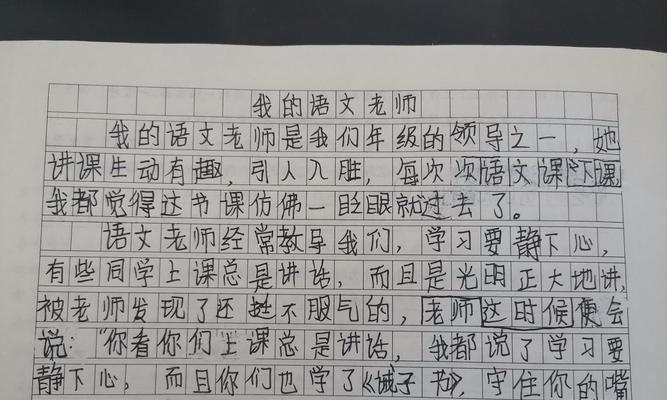 我的语文老师
我的语文老师是我们年级的领导之一，她
讲课生动有趣，引人入胜，每次次语文课下课，
我都觉得这节课仿佛一眨眼就过去了。
语文老师经常教导我们，学习要静下心，
有些同学上课总是讲话，而且是光明正大地讲，
被老师发现了还挺不服气的，老师这时候便会
说：“你看你们上课总是讲话，我都说了学习要
静下心，而且你们也学了《诫子书》，守住你的嘴